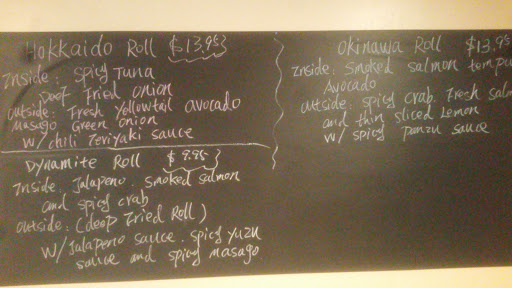 Hokkaido Roll $13.95
Inside: Spicy Tuna
Deef Fried Onion
outside: Fresh Yellowtail avocado
Masago Green onion
w/ chili Teriyaki sauce
Dynamite Roll $9.95
Inside: Jalapeno, Smoked Salmon
and spicy crab
outside: (deep Fried Roll)
w/ Jalapeno sauce. spicy Yuzu
sauce and spicy masago
Okinawa Roll $13.95
Inside: Smoked salmon tempu
Avocado
outside: spicy crab. Fresh Salm
and thin sliced Lemon
w/ spicy panzu sauce